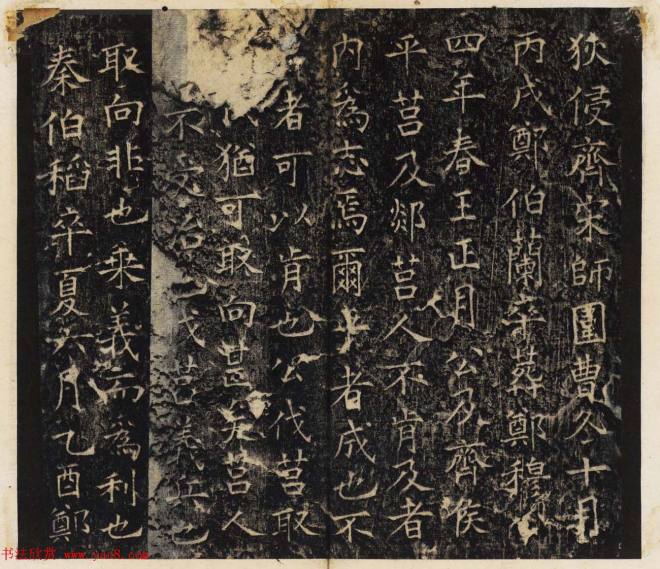 狄侵齊宋師圍曹冬十月
丙戌鄭伯蘭卒葬鄭穆公
四年春王正月公及齊侯
平莒及郯莒人不肯及者
内爲志焉爾平者成也不
者可以肯也公伐莒取
猶可取向甚矣莒人
不受治也伐莒義兵也
取向非也乘義而爲利也
秦伯稻卒夏六月乙酉鄭
书法欣赏 www.yac8.com